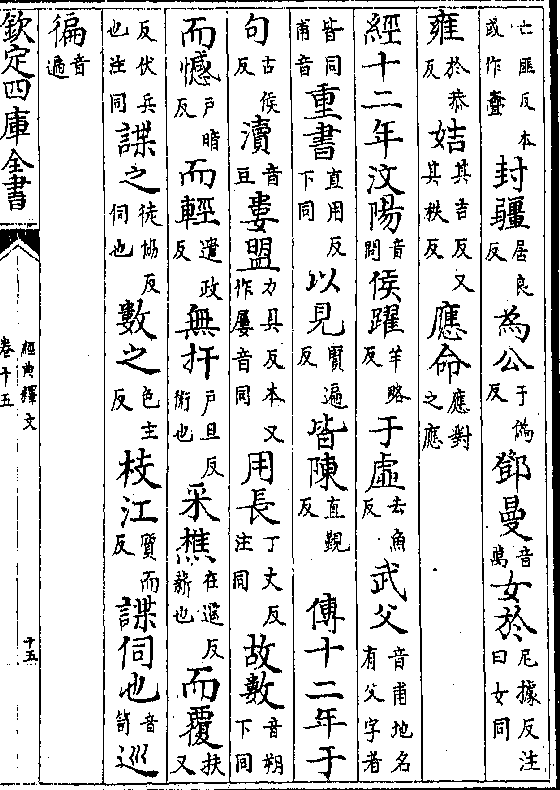 亡匪反本或作 封疆居良反 為公于偽反 鄧曼音萬 女於尼據反注曰女同
雍於恭反 姞其吉反又其秩反 應命應對之應
經十二年汶陽音問 侯躍羊略反 于虛去魚反 武父音甫地名有父字者
皆同甫音 重書直用反下同 以見賢遍反 皆陳直覲反 傳十二年于
句古侯反 瀆音豆 婁盟力具反本又作屢音同 用長丁丈反注同 故數音朔下同
而憾戶暗反 而輕遣政反 無扞戶旦反衛也 采樵在遥反薪也 而覆扶又
反伏兵也注同 諜之徒協反伺也 數之色主反 枝江質而反 諜伺也音笥 巡
徧音遍
欽定四庫全書
經典釋文
卷十五
十五